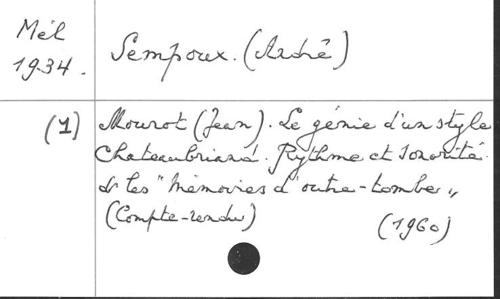 Mél
1934.
Sempoux. (André)
(1) Mourot (Jean). Le génie d'un style
Chateaubriand. Rythme et sonorité
ds les "Mémoires d'outre-tombe"
(Compte-rendu)
(1960)